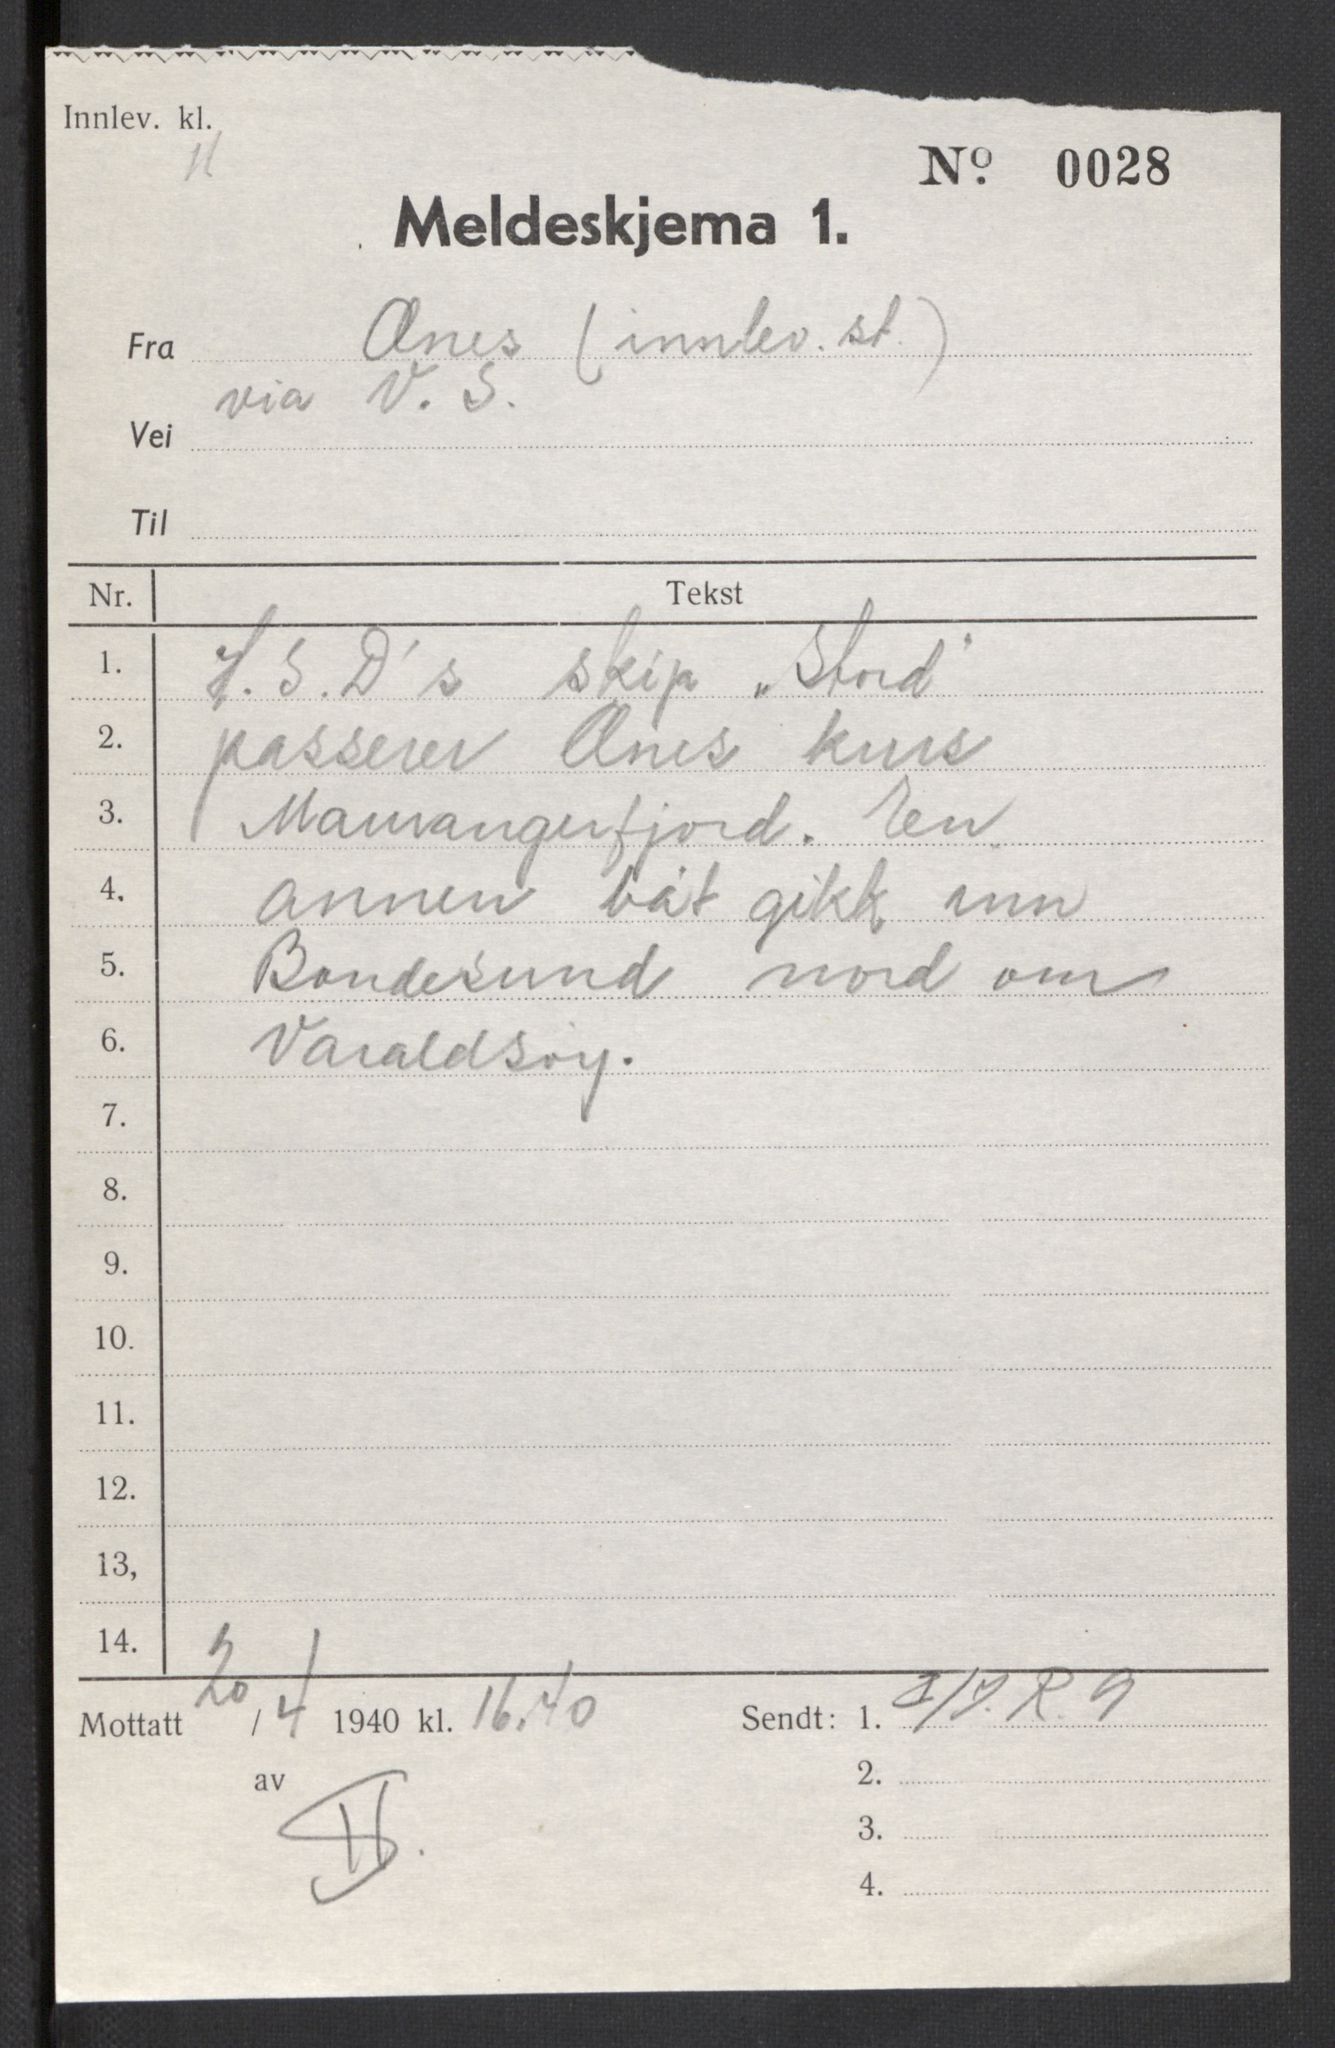 Innlev. kl.
No 0028
Meldeskjema 1.
Fra Ænes (innlev. st.)
via V. S.
Vei
Til
Nr. Tekst
1. H.S.D's skip „Stord"
2. passerer Ænes kurs
3. Maurangerfjord. En
4. annen båt gikk inn
5. Bondesund nord om
6. Varaldsøy.
7.
8.
9.
10.
11.
12.
13,
14.
Mottatt 20/4 1940 kl. 16.40 Sendt: 1. I/J.R. 9
av 2.
3.
4.